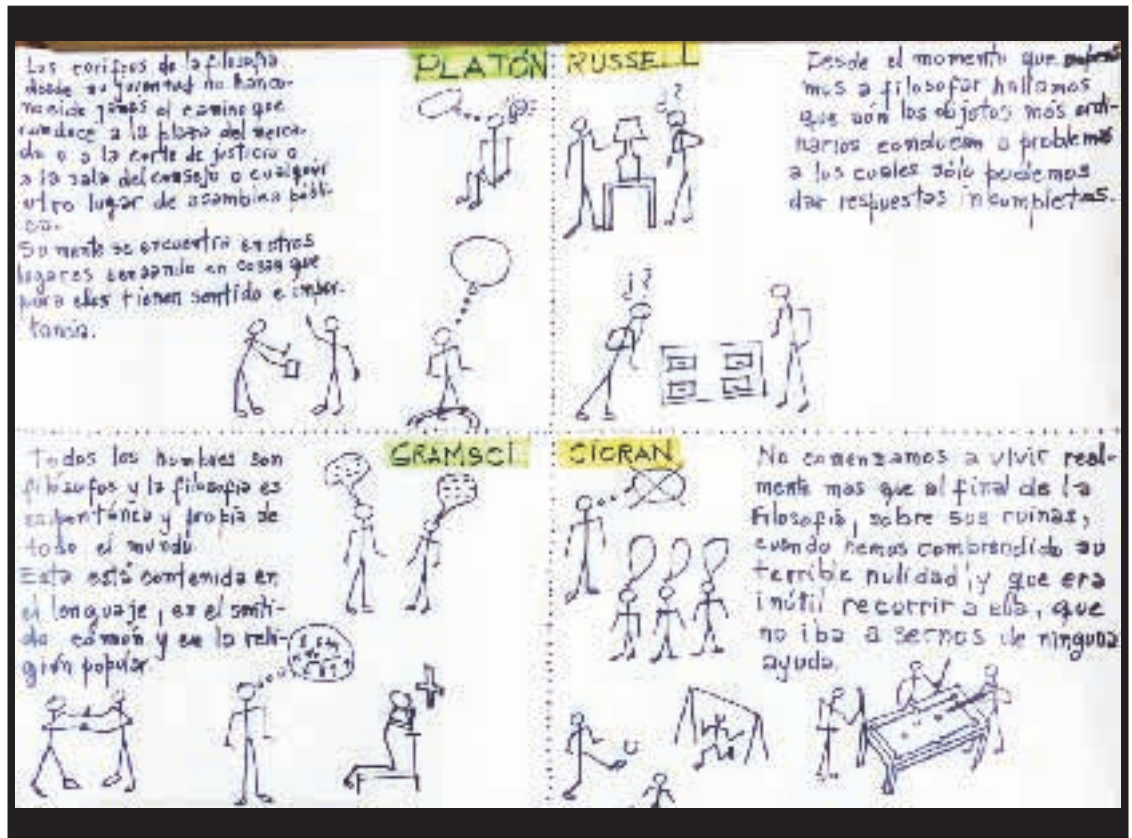 PLATÓN
Los corifeos de la filosofía
desde su juventud no han co-
nocido jamás el camino que
conduce a la plaza del merca-
do o a la corte de justicia o
a la sala del consejo o cualquier
otro lugar de asamblea públi-
ca.
Su mente se encuentra en otros
lugares pensando en cosas que
para ellos tienen sentido e impor-
tancia.
RUSSELL
Desde el momento que
mos a filosofar hallamos
que aún los objetos más ordi-
narios conducen a problemas
a los cuales sólo podemos
dar respuestas incompletas.
¿?
¿?
GRAMSCI
Todos los hombres son
filósofos y la filosofía es
espontánea y propia de
todo el mundo.
Esta está contenida en
el lenguaje, en el senti-
do común y en la reli-
gión popular.
CIORAN
No comenzamos a vivir real-
mente mas que al final de la
filosofía, sobre sus ruinas,
cuando hemos comprendido su
terrible nulidad, y que era
inútil recurrir a ella, que
no iba a sernos de ninguna
ayuda.